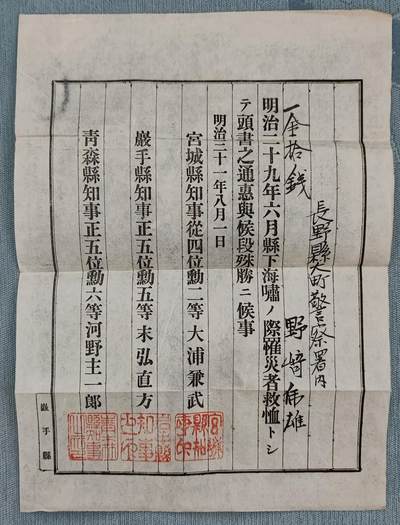 一金拾銭
長野縣大町警察署内
野﨑
明治二十九年六月縣下海嘯ノ際罹災者救恤トシ
テ頭書之通惠與候段殊勝ニ候事
明治三十一年八月一日
宮城縣知事從四位勲二等大浦兼武
巖手縣知事正五位勲五等末弘直方
青森縣知事正五位勲六等河野主一郎
巖手縣